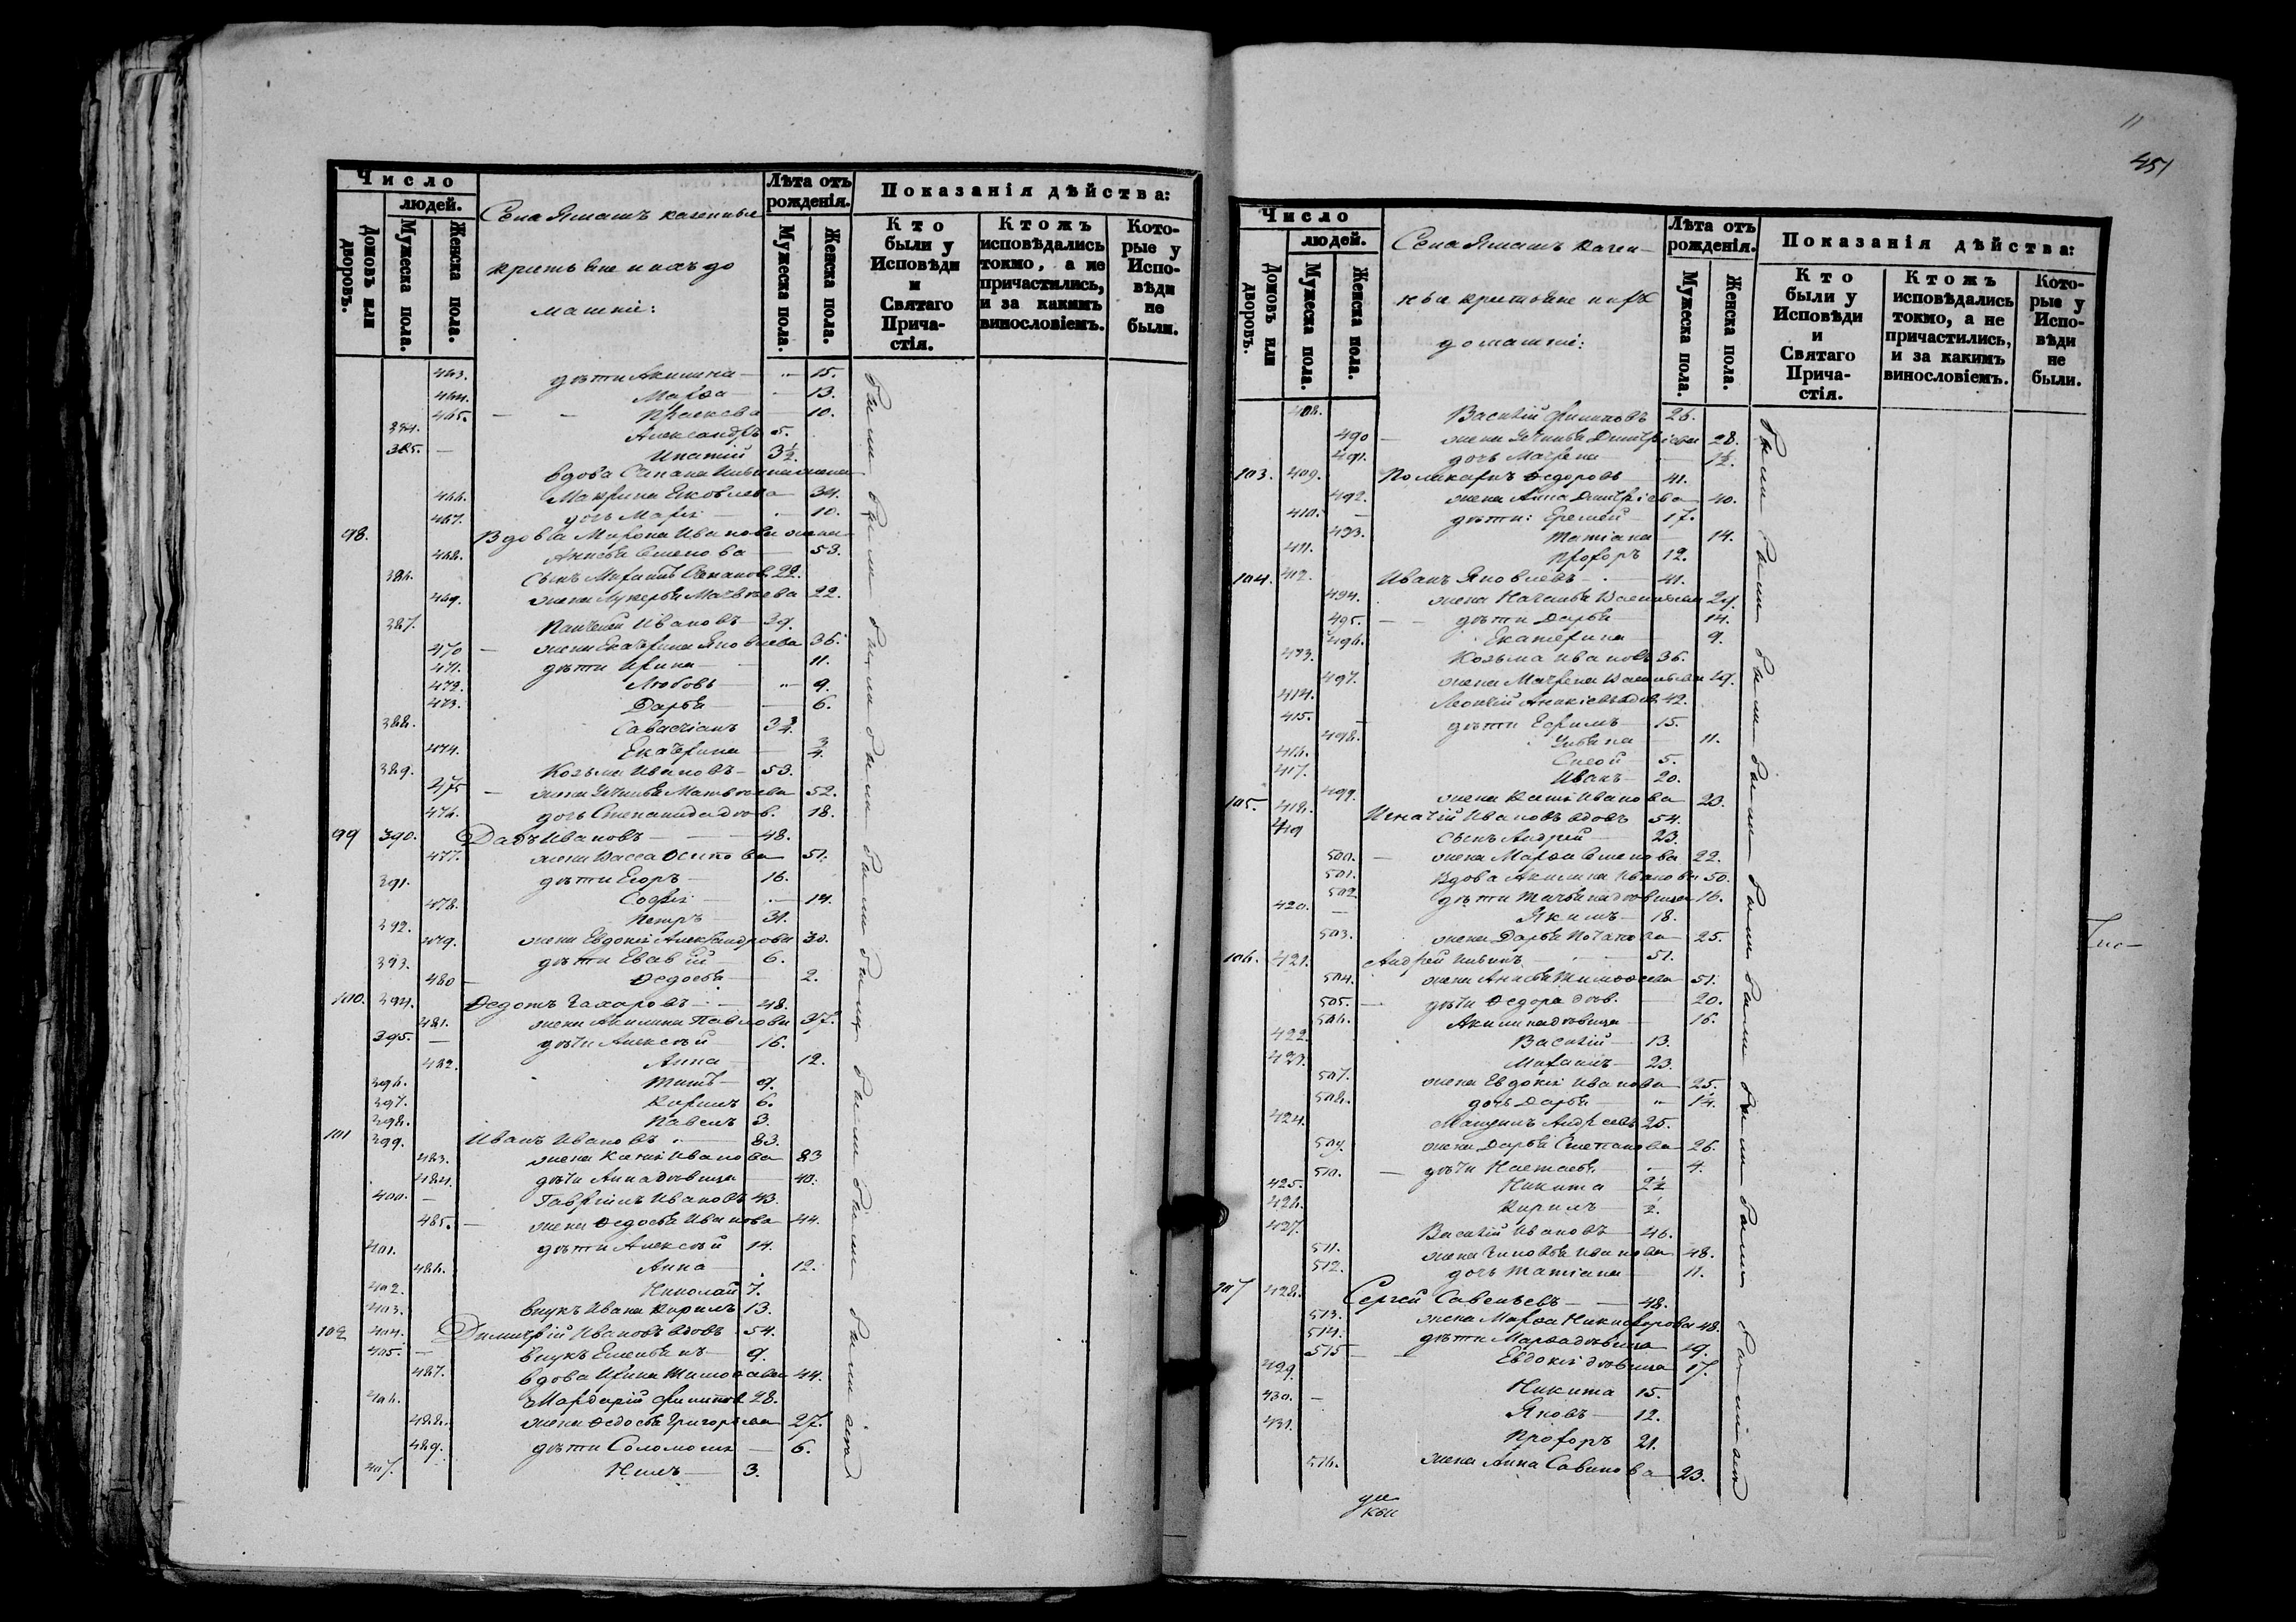 Число
людей.
Домовъ или дворовъ.
Мужеска пола.
Женска пола.
Села Яташъ казенные
крестьяне и ихъ до
машніе:
Лѣта отъ рожденія.
Мужеска пола.
Женска пола.
Показанія дѣйства:
Кто были у Исповѣди и Святаго Прича-стія.
Ктожъ исповѣдались токмо, а не причастились, и за какимъ винословіемъ.
Кото-рые у Испо-вѣди не были.
463. дѣти Акилина 15.
464. Марѳа 13.
465. Праскева 10.
384. Александръ 5.
385. Ипатій 3½.
466. Макрина Яковлева 34.
467. дочь Марія 10.
98. Вдова Мирона Иванова жена
468. Анисья Семенова 53.
386. сынъ 22.
469. жена Лукерья Матвѣева 22.
387. Пантелей Ивановъ 39.
470 жена Екатерина Яковлева 36.
471. дѣти Ирина 11.
472. Любовь 9.
473. Дарья 6.
388. Савастіанъ 3¾.
474. Екатерина ¾.
389. Козьма Ивановъ 53.
475 жена Устинья Матвѣева 52.
476. дочь Степанида дѣв. 18.
99 390. Ивановъ 48.
477. жена Васса Осипова 51.
391. дѣти Егоръ 16.
478. Софія 14.
392. Петръ 31.
479. жена Евдокія Александрова 30.
393. дѣти 6.
480 Ѳедосья 2.
100. 394. Ѳедотъ Захаровъ 48.
481. жена Акилина Павлова 37.
395. дѣти Алексѣй 16.
482. Анна 12.
396. Титъ 9.
397. Кирилъ 6.
398. Павелъ 3.
101 399. Иванъ Ивановъ 83.
483. жена Ксенія Иванова 83
484. дѣти Анна дѣвица 40.
400. Гавріилъ Ивановъ 43.
485. жена Ѳедосья Иванова 44.
401. дѣти Алексѣй 14.
486. Анна 12.
402. Николай 7.
403. внукъ Ивана Кирилъ 13.
102 404. Димитрій Ивановъ вдовъ 54.
405. внукъ Емельянъ 9.
487. вдова Ирина Тимоѳеева 44.
406. Мардарій Филиповъ 28.
488. жена Ѳедосья Григорьева 27.
489. дѣти Соломонія 6.
407. Нилъ 3.
11
451
Число
людей.
Домовъ или дворовъ.
Мужеска пола.
Женска пола.
Села Яташъ казен-
ные крестьяне и ихъ
домашніе:
Лѣта отъ рожденія.
Мужеска пола.
Женска пола.
Показанія дѣйства:
Кто были у Исповѣди и Святаго Прича-стія.
Ктожъ исповѣдались токмо, а не причастились, и за какимъ винословіемъ.
Кото-рые у Испо-вѣди не были.
408. Василій Филиповъ 26.
490 жена Устинья Дмитріева 28.
491. дочь Матрена 1½.
103. 409. Поликарпъ Ѳедоровъ 41.
492. жена Анна Дмитріева 40.
410. дѣти: Еремей 17.
493. Татіана 14.
411. Прохоръ 12.
104. 412. Иванъ Яковлевъ 41.
494. жена Наталья Васильева 29.
495. дѣти Дарья 14.
496. Екатерина 9.
413. Козьма Ивановъ 36.
497. жена Матрена Васильева 29.
414. Леонтій 42.
415. дѣти Ефимъ 15.
498. Ульяна 11.
416. Сысой 5.
417. Иванъ 20.
499. жена Ксенія Иванова 20.
105. 418. Игнатій Ивановъ вдовъ 54.
419 сынъ Андрей 23.
500. жена Марѳа Семенова 22.
501. Вдова Акилина Иванова 50.
502 дѣти Татьяна дѣвица 16.
420. Якимъ 18.
503. жена Дарья Потапова 25.
106. 421. Андрей Ильинъ 51.
504. жена Анисья Тимоѳеева 51.
505. дѣти Ѳедора дѣв. 20.
506. Акилина дѣвица 16.
422. Василій 13.
423. Михаилъ 23.
507. жена Евдокія Иванова 25.
508. дочь Дарья 1¼.
424. Андреевъ 25.
509. жена Дарья Степанова 26.
510. дѣти Настасья 4.
425. Никита 2½
426. Кирилъ ½.
427. Василій Ивановъ 46.
511. жена Зиновья Иванова 48.
512. дочь Татіана 11.
107 428. Сергей Савельевъ 48.
513. жена Марѳа Никифорова 48.
514. дѣти Марѳа дѣвица 19.
515 Евдокія дѣвица 17.
429. Никита 15.
430. Яковъ 12.
431. Прохоръ 21.
516. жена Анна Савинова 23.